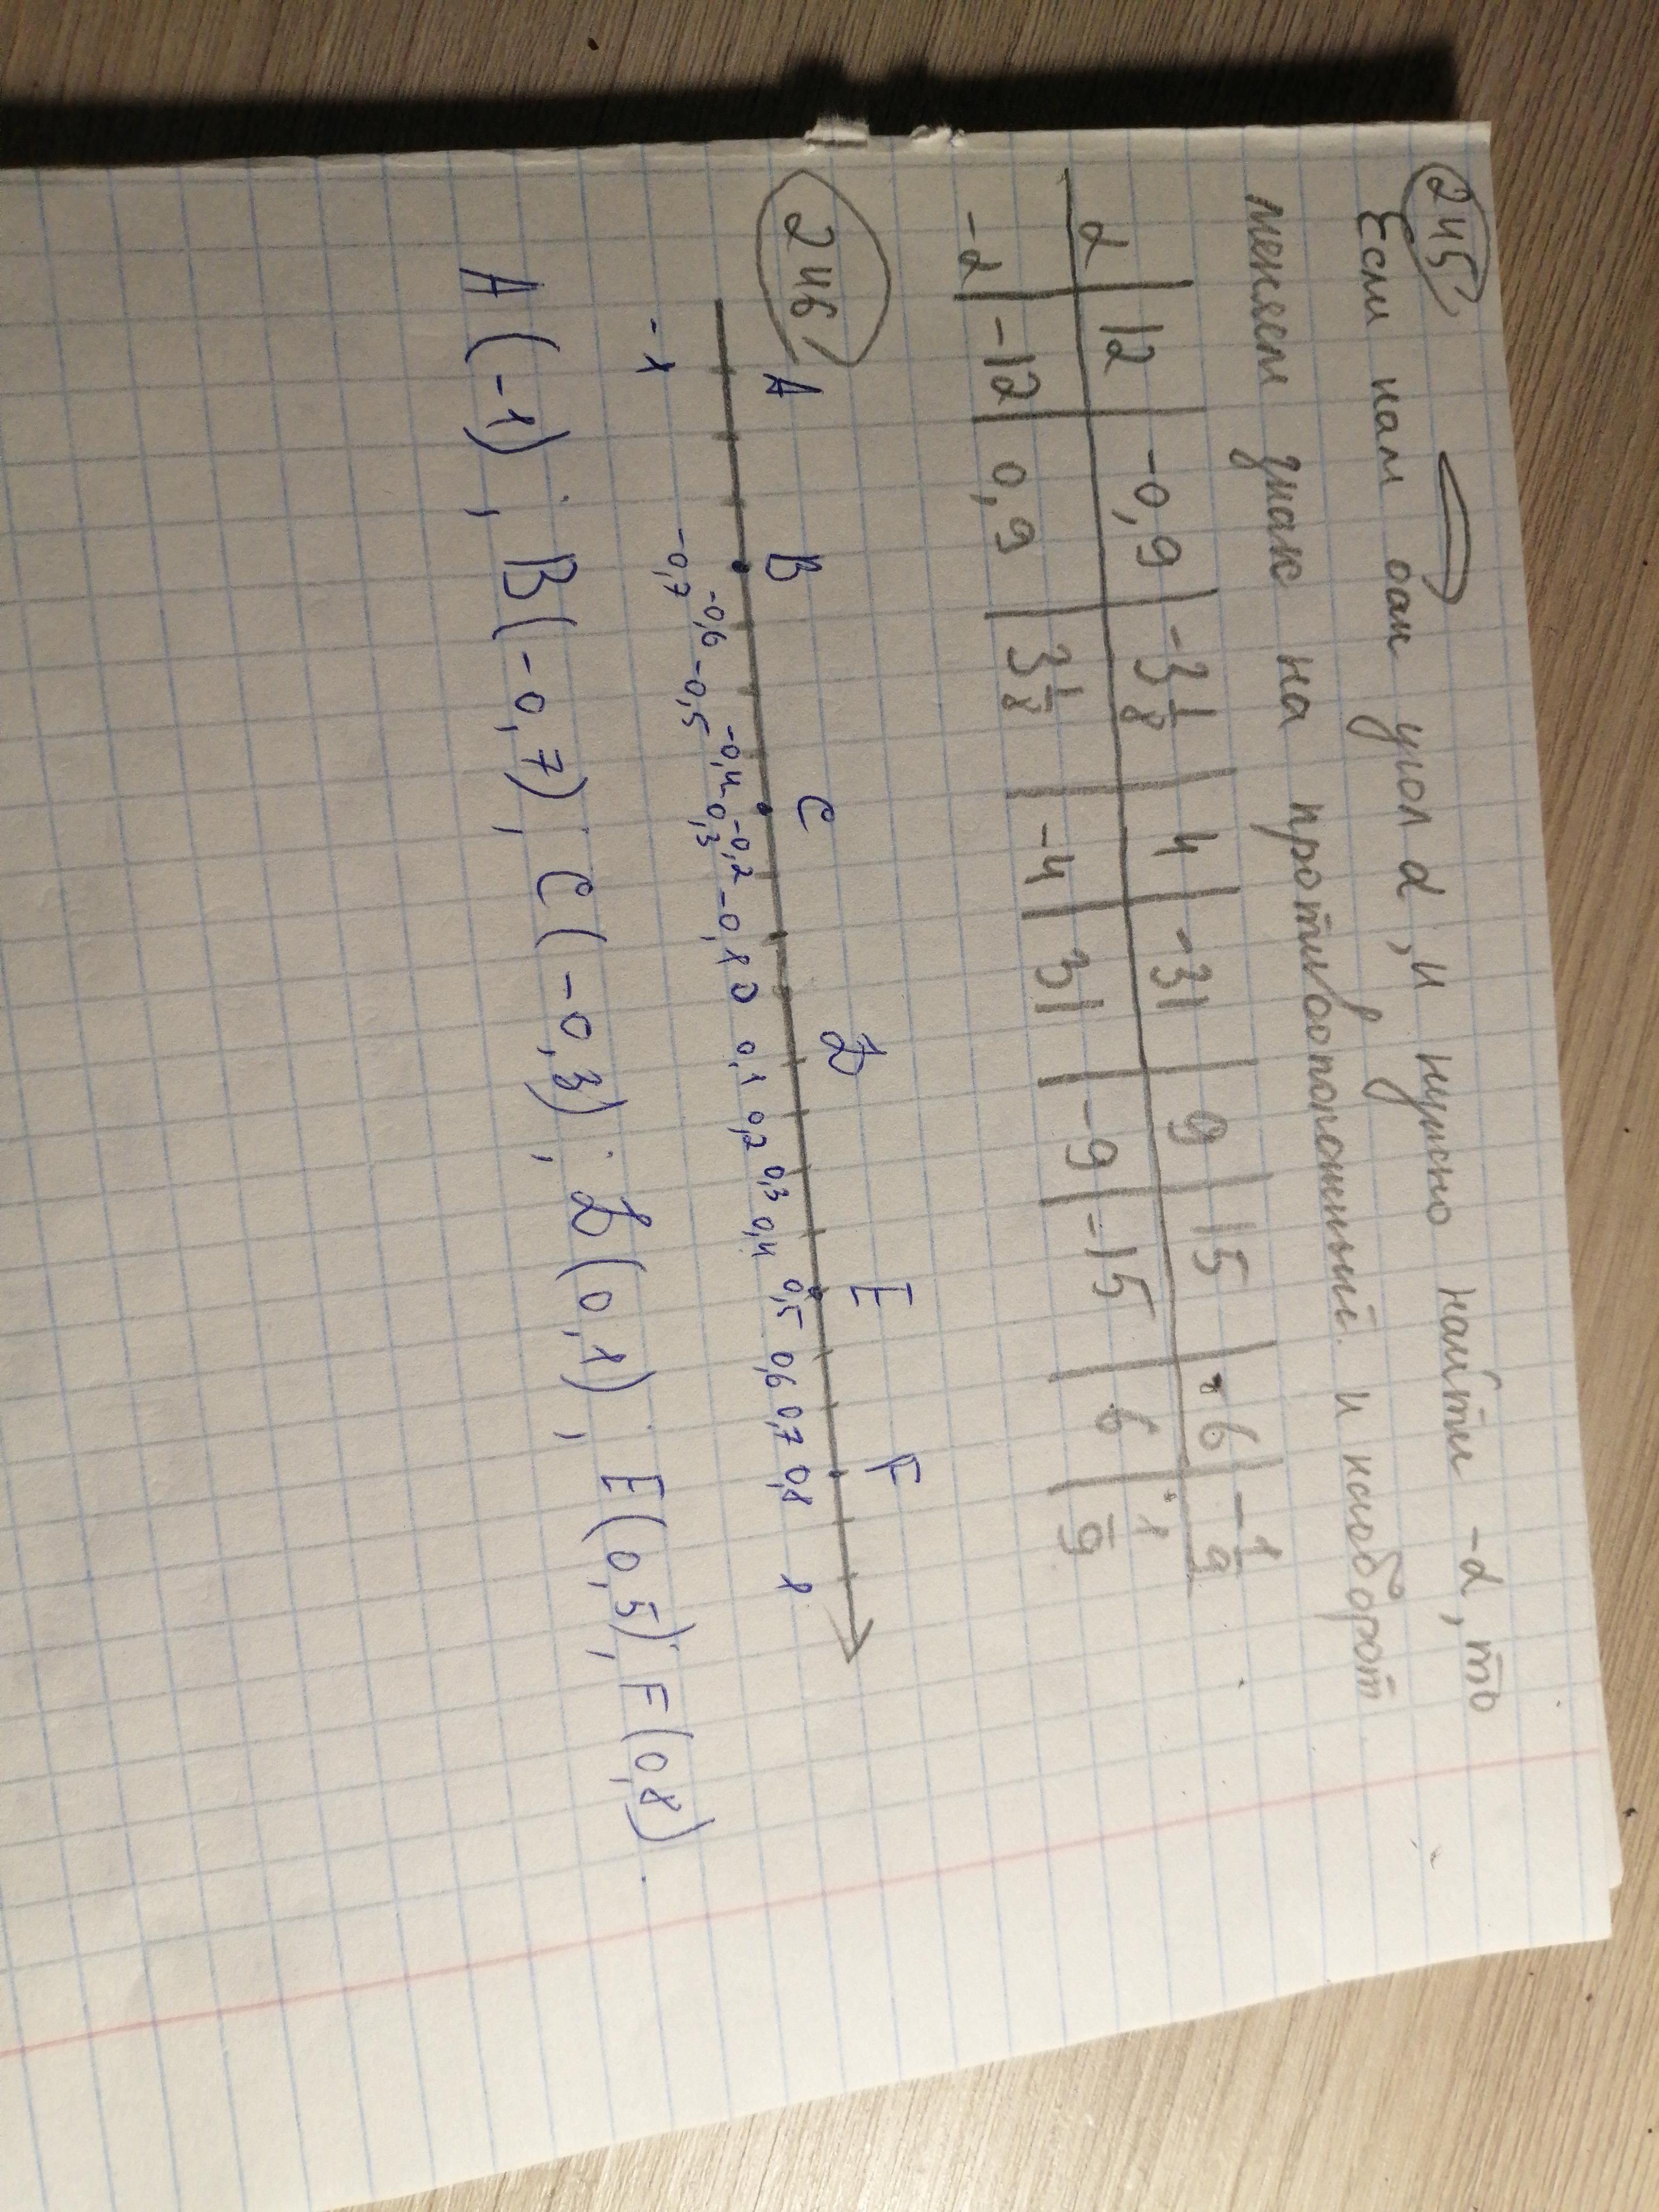 245
Если нам дан угол α, и нужно найти -α, то
меняем знак на противоположный. и наоборот
α | 12 | -0,9 | -3 1/8 | 4 | -31 | 9 | 15 | -6 | -1/9
-α | -12 | 0,9 | 3 1/8 | -4 | 31 | -9 | -15 | 6 | 1/9
246
A B C D E F
-1 -0,7 -0,6 -0,5 -0,4 -0,3 -0,2 -0,1 0 0,1 0,2 0,3 0,4 0,5 0,6 0,7 0,8 1
A(-1); B(-0,7); C(-0,3); D(0,1); E(0,5); F(0,8).